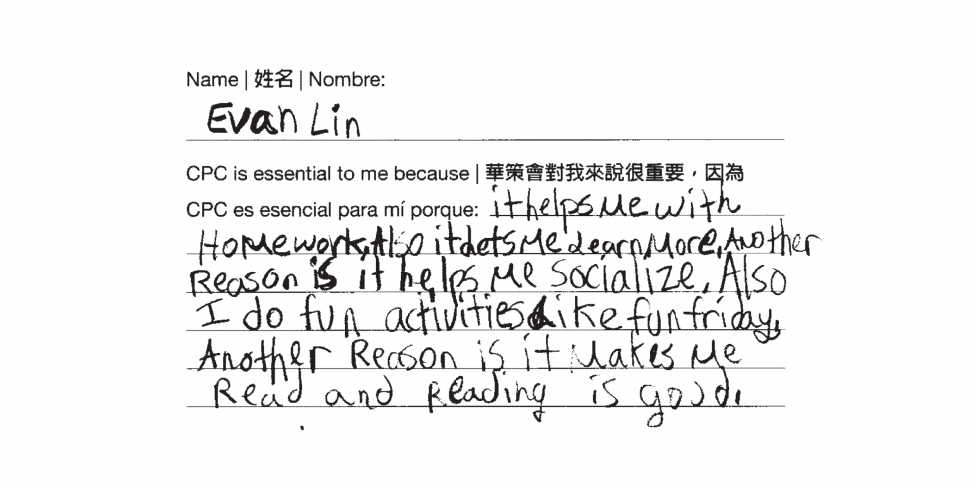 Name | 姓名 | Nombre:
Evan Lin
CPC is essential to me because | 華策會對我來說很重要，因為
CPC es esencial para mí porque: it helps me with
Homework, Also it lets me Learn More. Another
Reason is it helps me Socialize. Also
I do fun activities Like fun friday,
Another Reason is it Makes Me
Read and Reading is good.